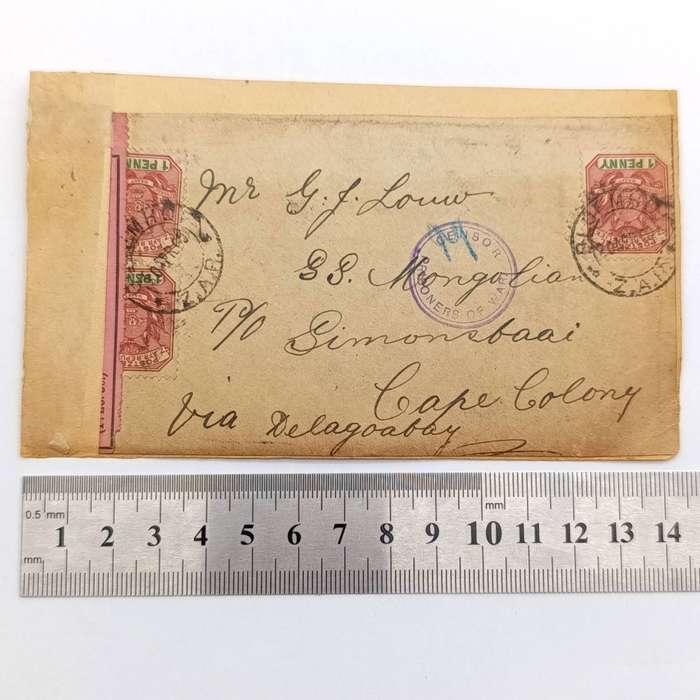 1 PENNY
1 PENNY
1 PENNY
Mr G. J. Louw
CENSOR
PRISONERS OF WAR
SS. Mongolian
P/O Simonsbaai
Cape Colony
via Delagoabay
Z.A.R.
Z.A.R.
0.5 mm
mm
mm
1 2 3 4 5 6 7 8 9 10 11 12 13 14